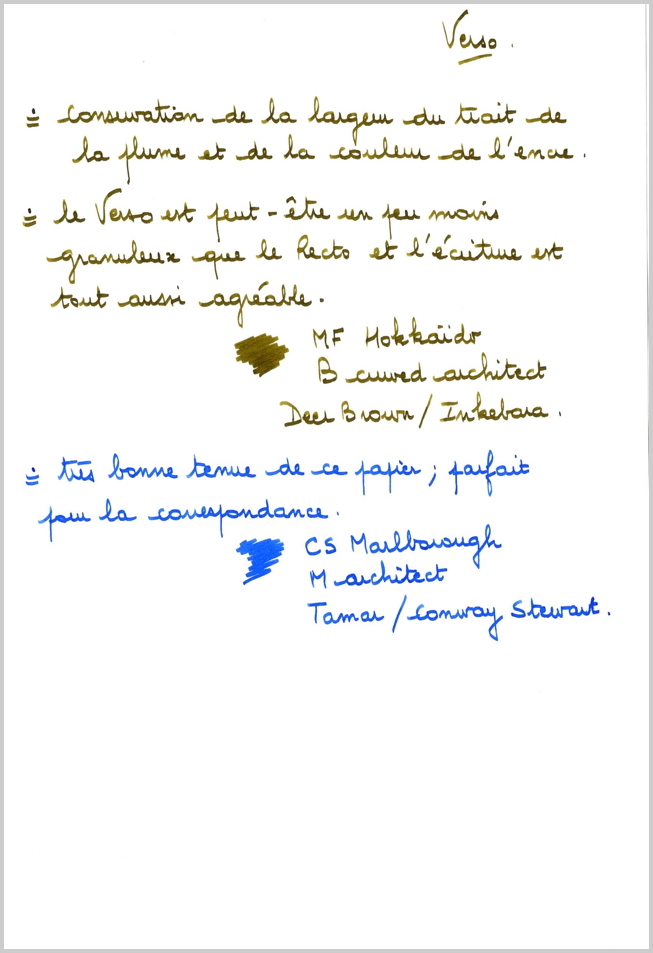 Verso.
÷ conservation de la largeur du trait de
la plume et de la couleur de l'encre.
÷ le Verso est peut-être un peu moins
granuleux que le Recto et l'écriture est
tout aussi agréable.
MF Hokkaïdo
B curved architect
Deer Brown / Inkebara.
÷ très bonne tenue de ce papier ; parfait
pour la correspondance.
CS Marlborough
M architect
Tamar / Conway Stewart.